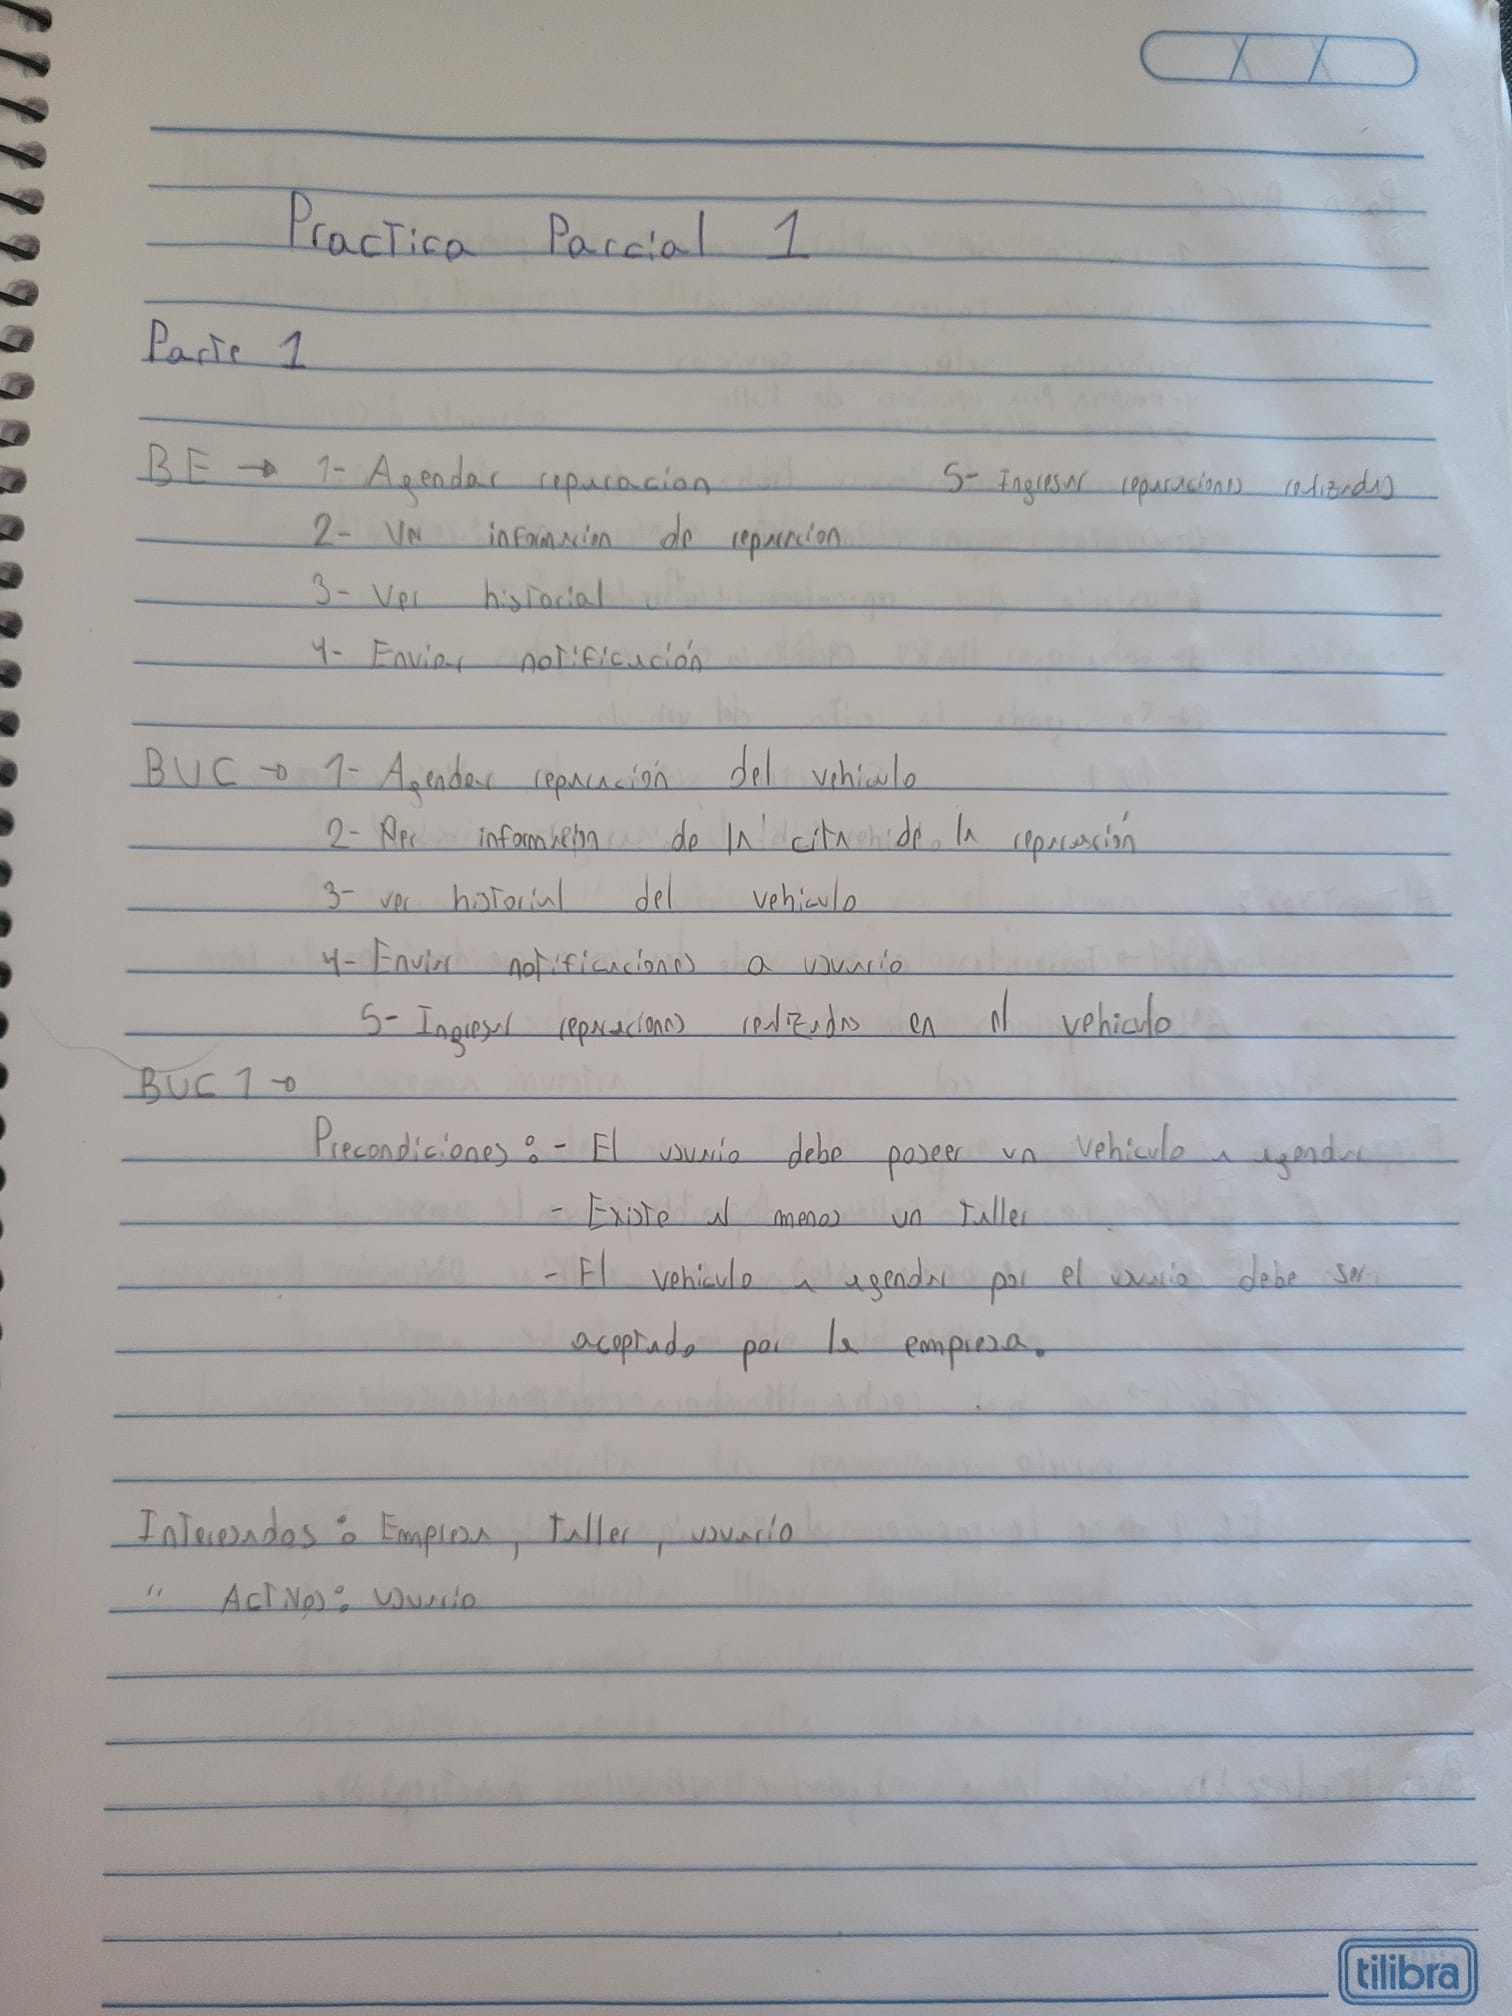 Practica Parcial 1
Parte 1
BE → 1- Agendar reparacion 5- Ingresar reparaciones realizadas
2- Ver informacion de reparacion
3- Ver historial
4- Enviar notificación
BUC → 1- Agendar reparación del vehiculo
2- Ver información de la cita de la reparación
3- ver historial del vehiculo
4- Enviar notificaciones a usuario
5- Ingresar reparaciones realizadas en el vehiculo
BUC 1 →
Precondiciones: - El usuario debe poseer un vehiculo a agendar
- Existe al menos un taller
- El vehiculo a agendar por el usuario debe ser
aceptado por la empresa.
Interesados: Empresa, taller, usuario
" Activos: usuario
tilibra